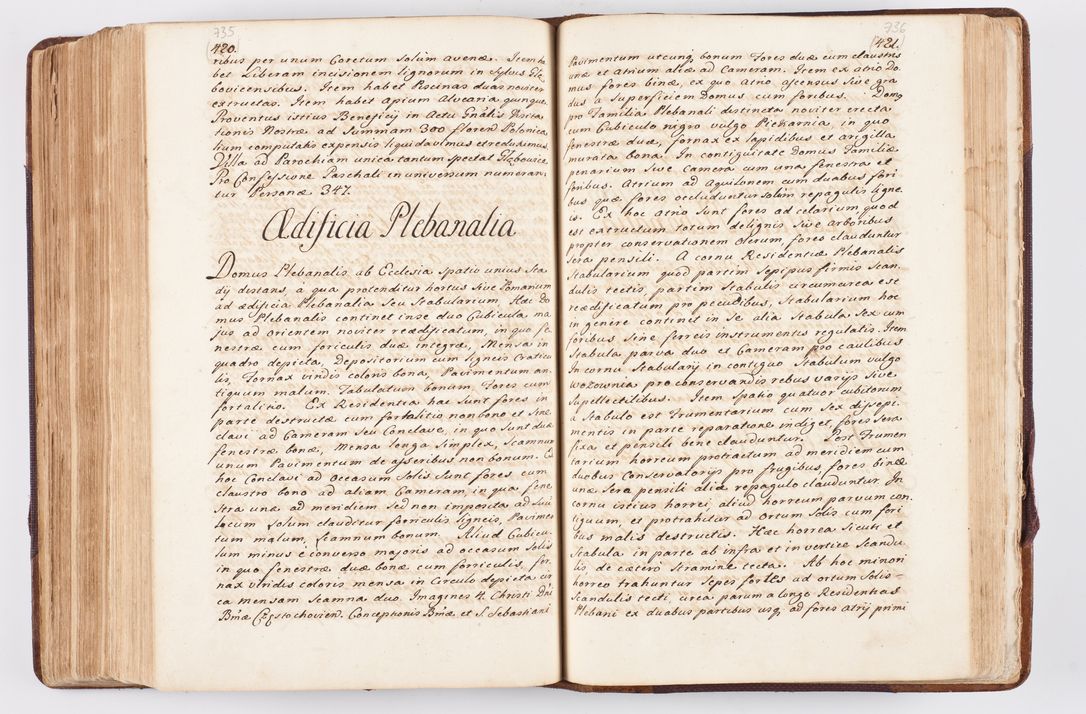 735
420.
ribus per unum Coretum Solum avenæ. Item ha
bet Liberam incisionem lignorum in Sylvis Gle
bovicensibus. Item habet Piscinas duas noviter
extructas. Item habet Apium Alvearia quinque
Proventus istius Beneficij in Actu Gnâlis Visita
tionis Nostræ ad Summam 300 floren Polonica
lium computatis expensis liquidavimus et reduximus.
Villa ad Parochiam unica tantum spectat Glebovice
Pro Confessione Paschali in universum numeran
tur Personæ 347.
Ædificia Plebanalia
Domus Plebanalis ab Ecclesia Spatio unius Sta
dij distans, à qua protenditur hortus Sive Pomarium
ad ædificia Plebanalia Seu Stabularium. Hæc Do
mus Plebanalis continet in se duo Cubicula ma
jus ad orientem noviter reædificatum, in quo fe
nestræ cum foriculis duæ integræ, Mensa in
quadro depicta, Depositorium cum ligneis Craticu
lis, Fornax viridis coloris bona, Pavimentum an
tiquum malum, Tabulatum bonum, Fores cum
fortalitio. Ex Residentia hac Sunt fores in
parte destructæ cum fortalitio non bono et Sine
clavi ad Cameram Seu Conclave, in quo Sunt duæ
fenestræ bonæ, Mensa longa Simplex, Scamnum
unum Pavimentum de asseribus non bonum. Ex
hoc Conclavi ad occasum Solis Sunt fores cum
claustro bono ad aliam Cameram, in qua fene
stra una ad meridiem Sed non imposita ad Sui
locum Solum clauditur forriculis ligneis, Pavimen
tum malum, Scamnum bonum. Aliud Cubicu
lum minus è converso majoris ad occasum Solis
in quo fenestræ duæ bonæ cum forriculis, for
nax viridis coloris mensa in Circulo depicta cir
ca mensam Scamna duo. Imagines 4. Christi Dni
Bmæ Częstochovien. Conceptionis Bmæ et S. Sebastiani
736
421.
Pavimentum utcunq, bonum Fores duæ cum claustris
unæ et atrium aliæ ad Cameram. Item ex atrio Do
mus fores binæ, ex quo Atrio ascensus Sive gra
dus a Superficiem Domus cum foribus. Domus
pro Familia Plebanali destinata noviter erecta
cum Cubiculo nigro vulgo Piekarnia, in quo
fenestræ duæ, fornax ex lapidibus et argilla
murata bona. In contiguitate Domus Familiæ
penarium Sive Camera cum una fenestra et
foribus. Atrium ad Aquilonem cum duabus fori
bus quæ fores occluduntur solum repagulis ligne
is. Ex hoc atrio Sunt fores ad celarium, quod
est extructum totum de lignis Sive arboribus
propter conservationem olerum, fores clauduntur
Sera pensili. A cornu Residentiæ Plebanalis
Stabularium quod partim Sepipus firmis Scan
dulis tectis partim Stabulis circumarea est
reædificatum pro pecudibus, Stabularium hoc
in genere continet in Se alia Stabula Sex cum
foribus Sine ferreis instrumentis regulatis. Item
Stabula parva duo et Cameram pro caulibus
In cornu Stabularij in contiguo Stabulum vulgo
Wozownia pro conservandis rebus varijs Sive
Supellectilibus. Item Spatio quatuor cubitorum
a Stabulo est Frumentarium cum Sex dissepi
mentis in parte reparatione indiget, fores Sera
fixa et pensili bene clauduntur. Post Frumen
tarium horreum protractum ad meridiem cum
duobus Conservatorijs pro frugibus, fores binæ
unæ Sera pensili aliæ repagulo clauduntur. In
cornu istius horrei, aliud horreum parvum con
tiguum, et protrahitur ad ortum Solis cum fori
bus malis destructis. Hæc horrea Sicuti et
Stabula in parte ab infra et in vertice Scandu
lis de cætero Stramine tecta. Ab hoc minori
horreo trahuntur Sepes fortes ad ortum Solis
Scandulis tecti, circa parum a longo Residentias
Plebani ex duabus partibus usq, ad fores atrij primi